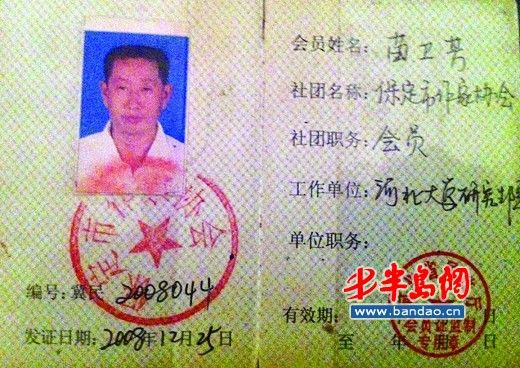 会员姓名：苗卫芳
社团名称：保定市作家协会
社团职务：会员
工作单位：河北大学研究生院
单位职务：
保定市作家协会
编号：冀民 2008044
发证日期：2008年12月25日
有效期：
至 年
会员证监制
专用章
半岛网
www.bandao.cn